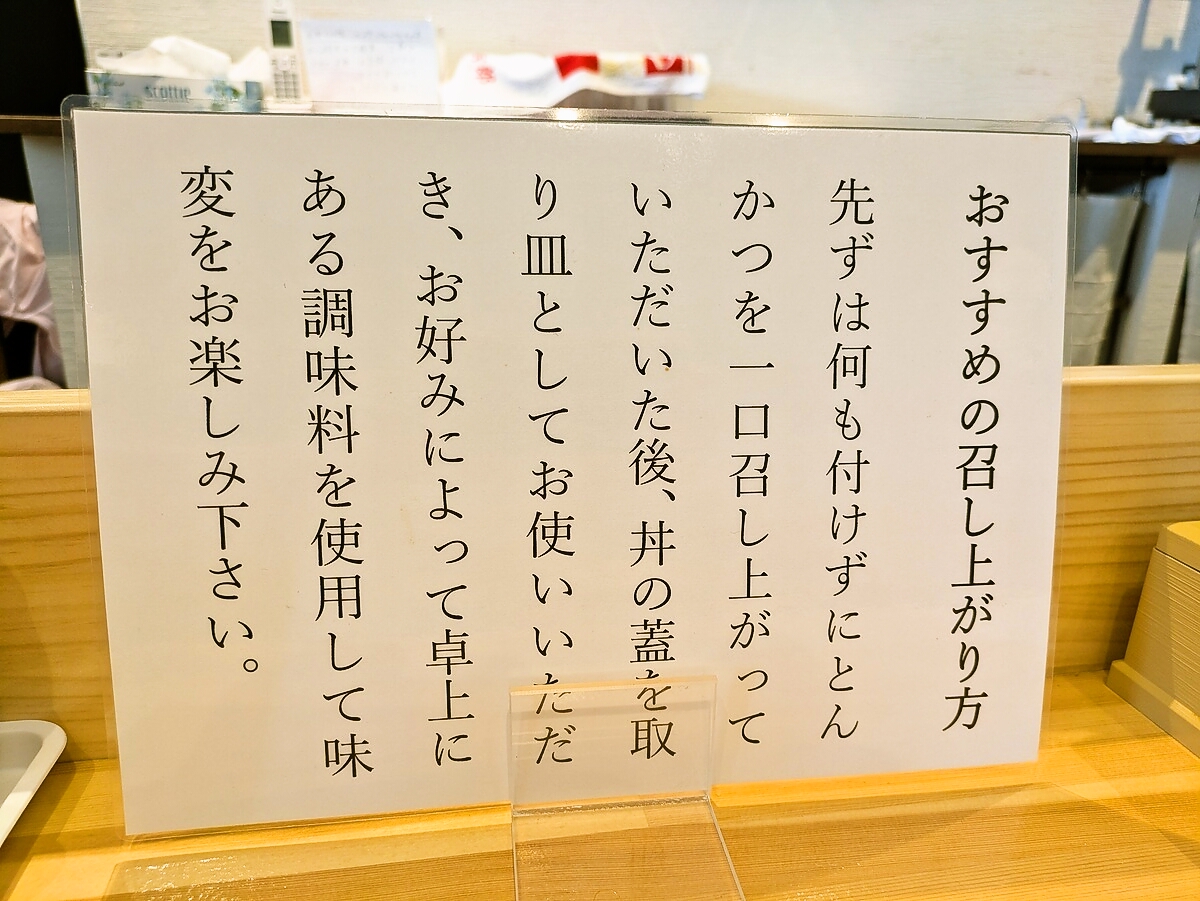 おすすめの召し上がり方
先ずは何も付けずにとん
かつを一口召し上がって
いただいた後、丼の蓋を取
り皿としてお使いいただ
き、お好みによって卓上に
ある調味料を使用して味
変をお楽しみ下さい。
scottie